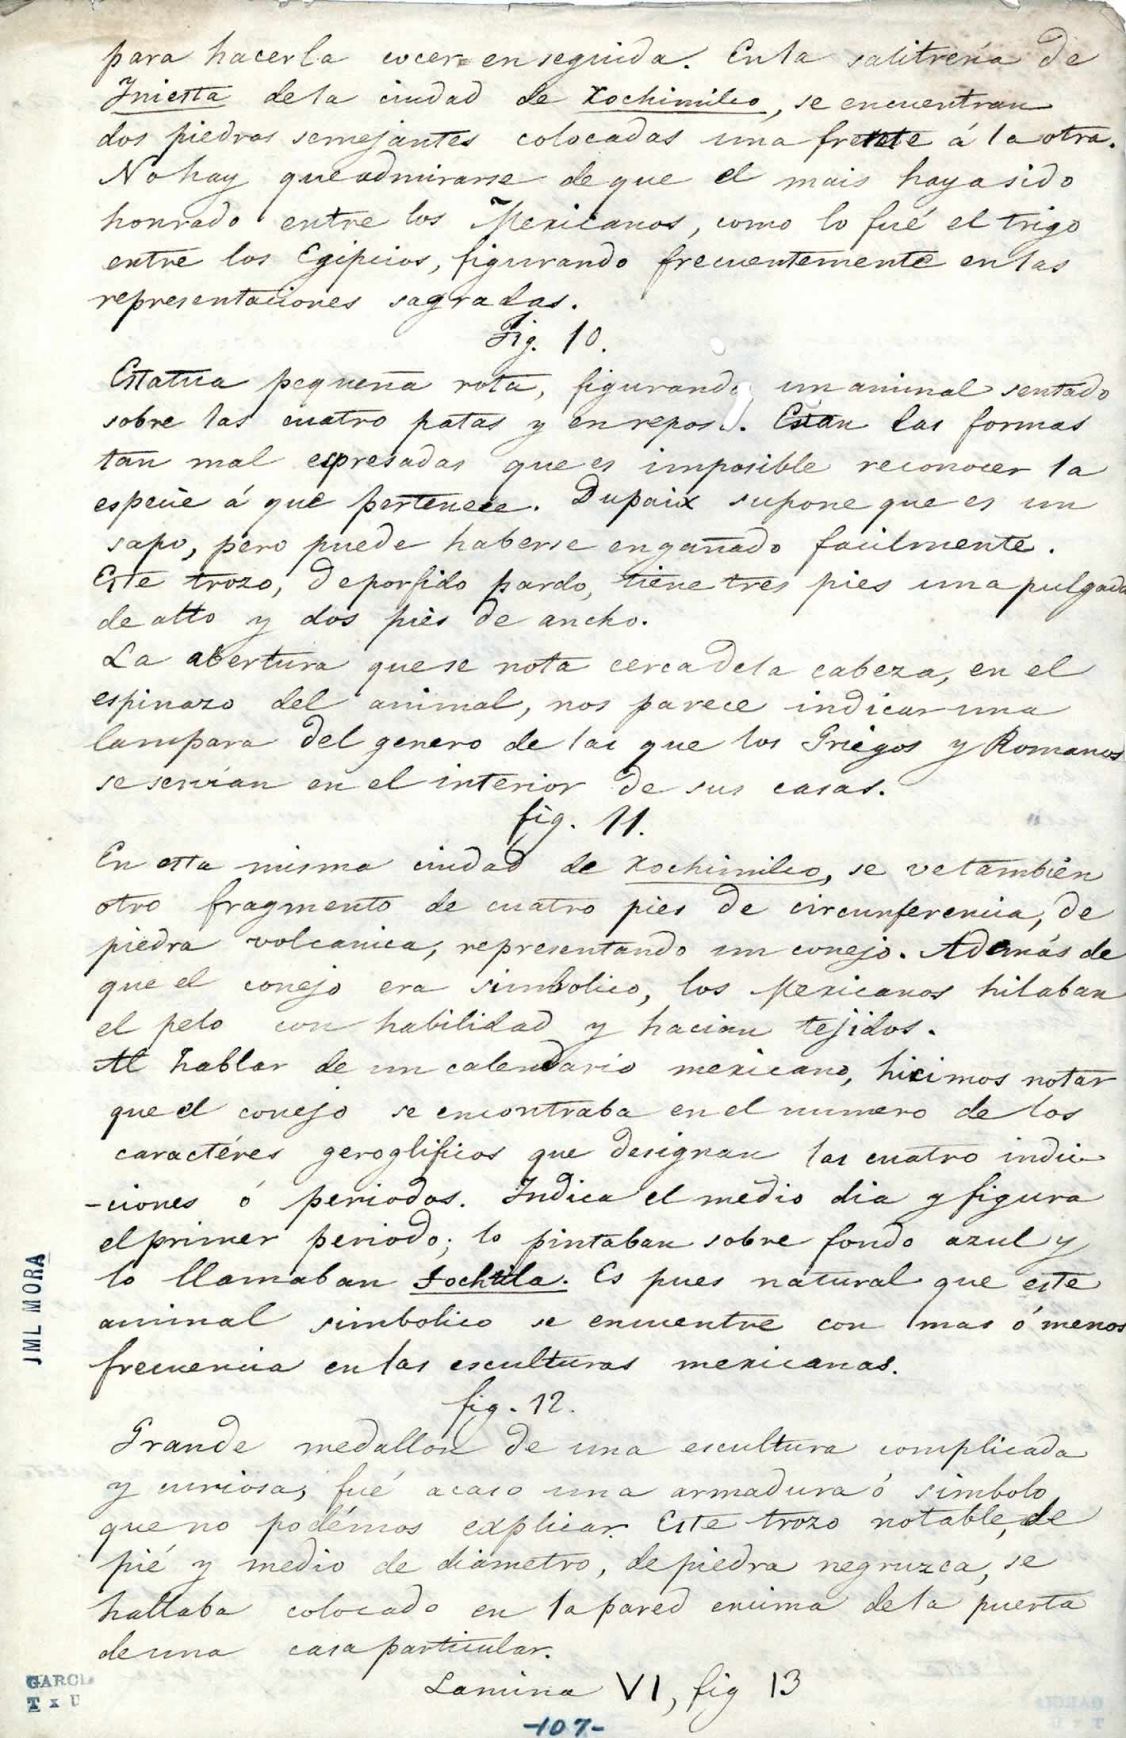 para hacerla cocer en seguida. En la salitreria de
Iniesta de la ciudad de Xochimilco, se encuentran
dos piedras semejantes colocadas una frente á la otra.
No hay que admirarse de que el mais haya sido
honrado entre los Mexicanos, como lo fué el trigo
entre los Egipcios, figurando frecuentemente en las
representaciones sagradas.
Fig. 10.
Estatua pequeña rota, figurando un animal sentado
sobre las cuatro patas y en reposo. Están las formas
tan mal espresadas que es imposible reconocer la
especie á que pertenece. Dupaix supone que es un
sapo, pero puede haberse engañado facilmente.
Este trozo, de porfido pardo, tiene tres pies una pulgada
de alto y dos piés de ancho.
La abertura que se nota cerca de la cabeza, en el
espinazo del animal, nos parece indicar una
lampara del genero de las que los Griegos y Romanos
se servian en el interior de sus casas.
fig. 11.
En esta misma ciudad de Xochimilco, se ve también
otro fragmento de cuatro pies de circunferencia, de
piedra volcanica, representando un conejo. Además de
que el conejo era simbolico, los Mexicanos hilaban
el pelo con habilidad y hacian tejidos.
Al hablar de un calendario mexicano, hicimos notar
que el conejo se encontraba en el numero de los
caractéres geroglificos que designan las cuatro indic-
-ciones ó periodos. Indica el medio dia y figura
el primer periodo; lo pintaban sobre fondo azul y
lo llamaban Tochtla. Es pues natural que este
animal simbolico se encuentre con mas ó menos
frecuencia en las esculturas mexicanas.
fig. 12.
Grande medallon de una escultura complicada
y curiosa, fué acaso una armadura ó simbolo
que no podémos explicar. Este trozo notable, de
pié y medio de diametro, de piedra negruzca, se
hallaba colocado en la pared encima de la puerta
de una casa particular.
Lamina VI, fig 13
-107-
JML MORA
GARCIA
T x U